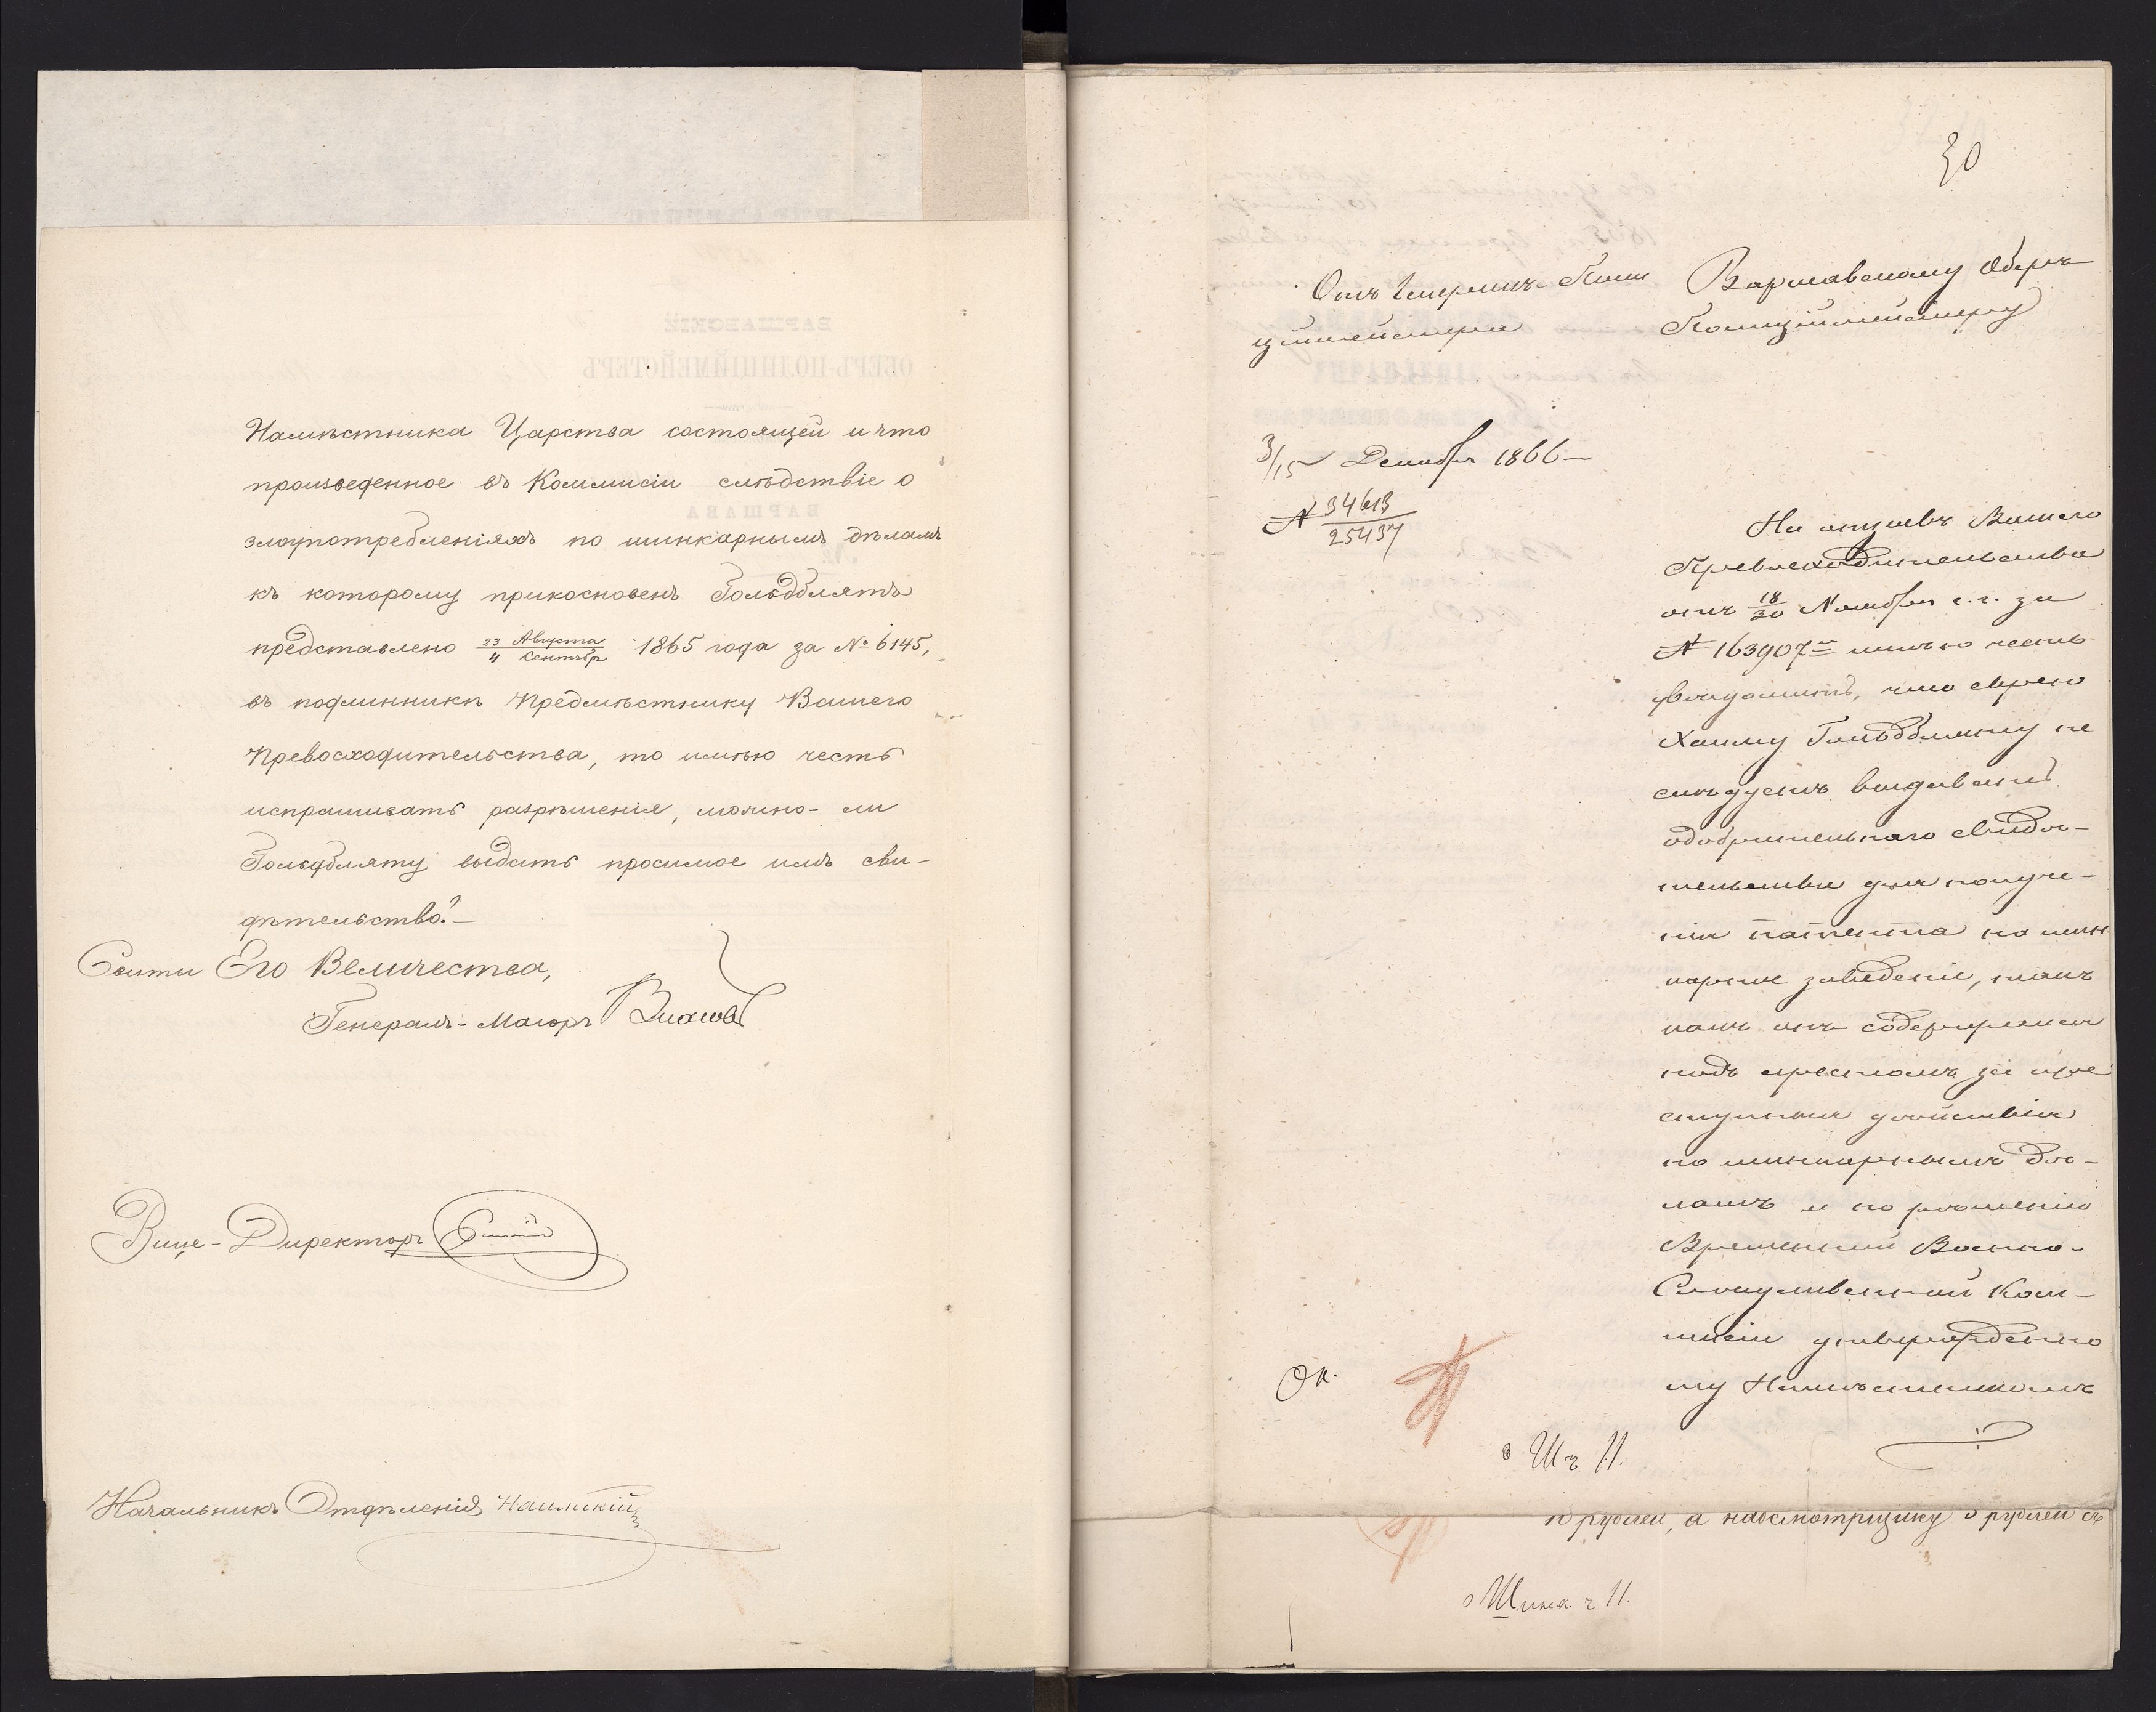 Намѣстника Царства состоящей и что
произведенное въ Коммисіи слѣдствіе о
злоупотребленіяхъ по шинкарнымъ дѣламъ
къ которому прикосновенъ Гольдблятъ
представлено 23 Августа / 4 Сентябр 1865 года за № 6145,
въ подлинникѣ Предмѣстнику Вашего
Превосходительства, то имѣю честь
испрашивать разрѣшенія, можно-ли
Гольдбляту выдать просимое имъ сви-
дѣтельство?—
Свиты Его Величества,
Генералъ-Маіоръ
Вице-Директоръ
Начальникъ Отдѣленія
30
Отъ Генералъ-Поли
ціймейстера
Варшавскому Оберъ
Полиціймейстеру
3/15 Декабря 1866—
№ 34613 / 25437
На отзывъ Вашего
Превосходительства
отъ 18/30 Ноября с. г. за
№ 163907 имѣю честь
увѣдомить, что еврею
Хаиму Гольдбляту не
слѣдуетъ выдавать
одобрительнаго свидѣ-
тельства для получе-
нія патента на шин
карное заведеніе, такъ
какъ онъ содержался
подъ арестомъ за пре
ступныя дѣйствія
по шинкарнымъ дѣ-
ламъ и по рѣшенію
Временной Военно-
Слѣдственной Ком-
мисіи утвержденно
му Намѣстникомъ
Ок.
о Ш ч 11.
рублей, а надсмотрщику 5 рублей съ
о Шинк. ч 11.